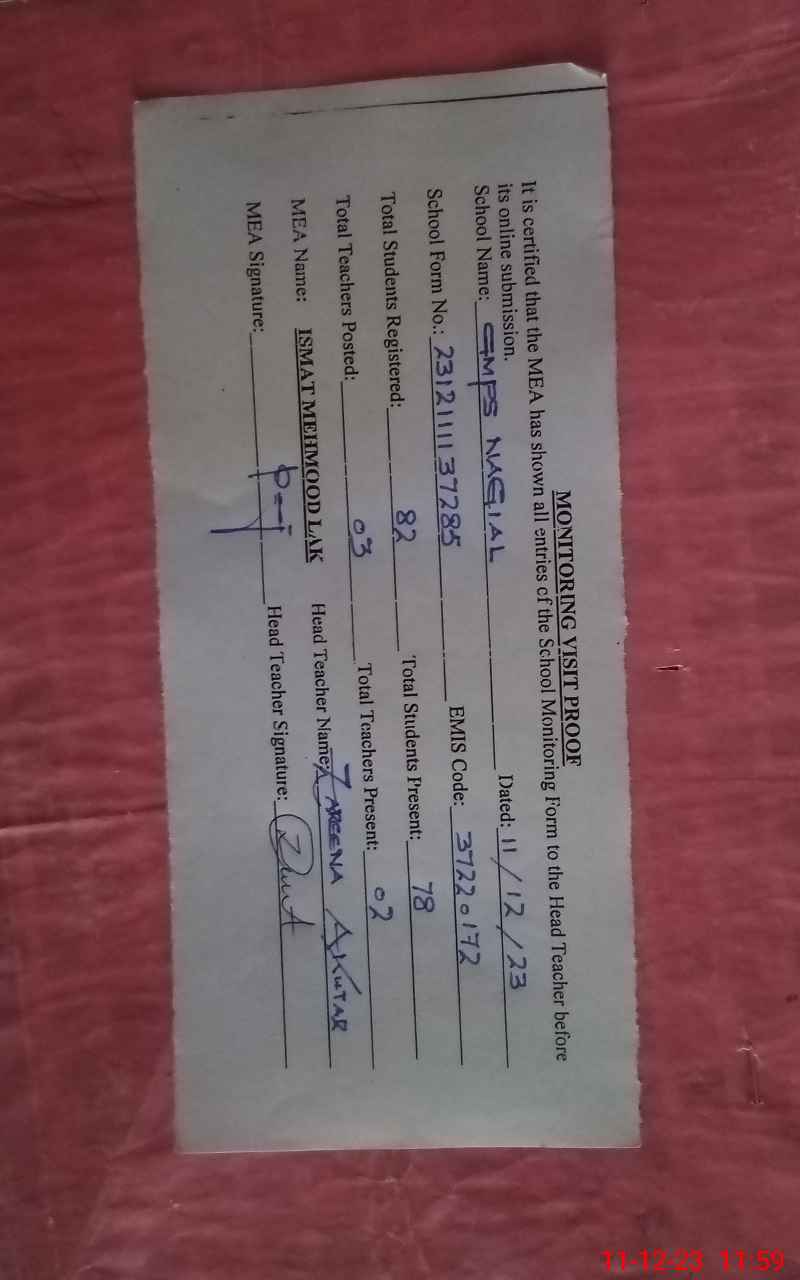 MONITORING VISIT PROOF
It is certified that the MEA has shown all entries of the School Monitoring Form to the Head Teacher before
its online submission.
School Name: GMPS NAGIAL Dated: 11/12/23
School Form No.: 231211137285 EMIS Code: 37220172
Total Students Registered: 82 Total Students Present: 78
Total Teachers Posted: 03 Total Teachers Present: 02
MEA Name: ISMAT MEHMOOD LAK Head Teacher Name: ZAREENA AKHTAR
MEA Signature: Head Teacher Signature:
11-12-23 11:59